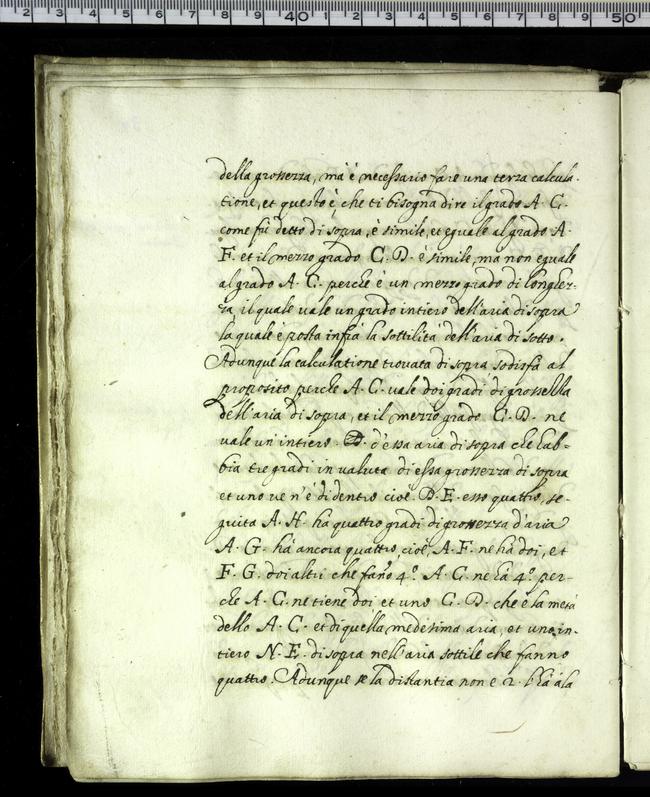 2 3 4 5 6 7 8 9 40 1 2 3 4 5 6 7 8 9 50
della grossezza, mà è necessario fare una terza calcula-
tione, et questo è che ti bisogna dire il grado A. C.
come fù detto di sopra, è simile, et eguale al grado A.
F. et il mezzo grado C. D. è simile, ma non eguale
al grado A. C. perche è un mezzo grado di longhez-
za, il quale vale un grado intiero dell'aria di sopra
la quale è posta infrà la sottilità dell'aria di sotto.
Adunque la calculatione trovata di sopra sodisfà al
proposito perche A. C. vale doi gradi di grossezza
dell'aria di sopra, et il mezzo grado C. D. ne
vale un'intiero. d'essa aria di sopra che hab-
bia tre gradi in valuta di essa grossezza di sopra
et uno ve n'è di dentro cioè. D. E. esso quattro, se-
guita A. H. ha quattro gradi di grossezza d'aria
A. G. hà ancora quattro, cioè, A. F. ne hà doi, et
F. G. doi altri che fanno 4.º A. C. ne hà 4.º per-
che A. C. ne tiene doi et uno C. D. che è la metà
dello A. C. et di quella medesima aria, et uno in-
tiero N. E. di sopra nell'aria sottile che fanno
quattro. Adunque se la distantia non e 2. à la